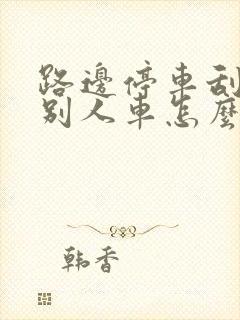 路邊停車刮
別人車怎麼
韩香